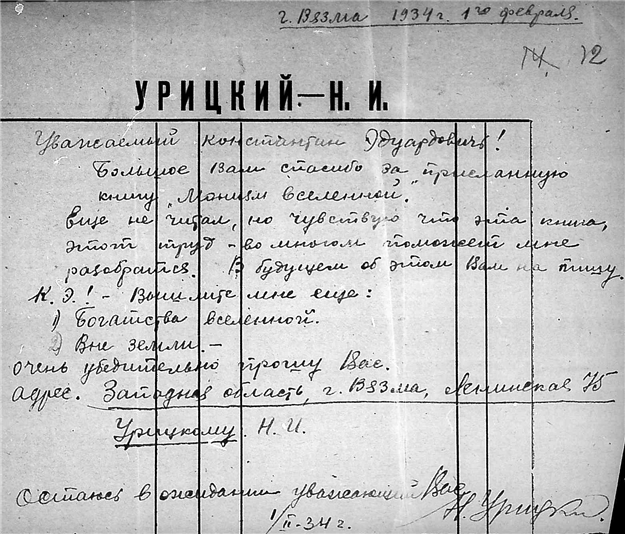 г. Вязма 1934 г. 1го февраля.
12
УРИЦКИЙ—Н. И.
Уважаемый Константин Эдуардовичь!
Большое Вам спасибо за присланную
книгу „Монизм вселенной".
Еще не читал, но чувствую что эта книга,
этот труд - во многом поможет мне
разобратся. В будущем об этом Вам на пишу.
К. Э.! - Вышлите мне еще:
1) Богатства вселенной.
2) Вне земли. -
очень убедительно прошу Вас.
адрес. Западная область, г. Вязма, Ленинская 75
Урицкому Н. И.
Остаюсь в ожидании уважающий Вас
Н. Урицкий.
1/II-34 г.